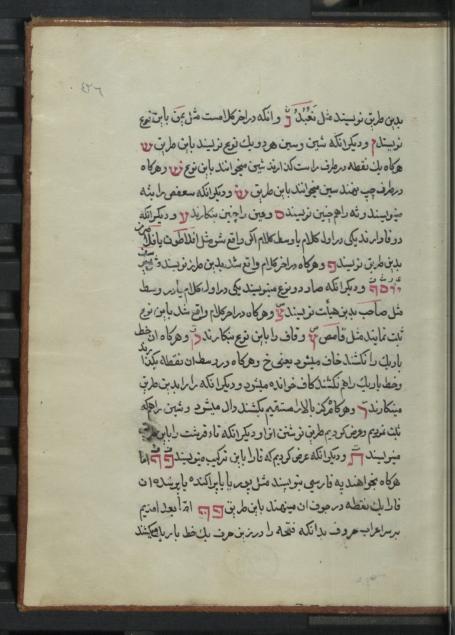 بدین طریق نویسند مثل نَعْبُدُ و آنکه در آخر کلامست مثل بن باین نوع
نویسند و دیگر آنکه شین و سین هر دو بیک نوع نویسند باین طریق ש
هرکاه یك نقطه در طرف راست کذارند شین میخوانند باین نوع שׁ و هرکاه
در طرف چپ نهند سین میخوانند باین طریق שׂ و دیگر آنکه سعفص را بثه
مینویسند و ثه را همچنین نویسند ס و عین را چنین نکارند ע و دیگر آنکه
دو فا دارند یکی در اول کلام یا وسط کلام اکر واقع شود مثل
بدین طریق نویسند פ و هرکاه در آخر کلام واقع شد بدین طرز نویسند
و دیگر آنکه صاد دو نوع مینویسند یکی در اول کلام یا در وسط
مثل صاحب بدین هیأت نویسند צ و هرکاه در آخر کلام واقع شد باین نوع
ثبت نمایند مثل قامص ץ و قاف را باین نوع نکارند ק و هرکاه آن خط
باریك را نکشند خان میشود یعنی خ و هرکاه در وسط آن نقطه
و خط باریك را هم نکشند کاف خوانده میشود و دیگر آنکه را را بدین طریق
مینکارند ר و هرکاه مرکز بالا را مستقیم بکشند دال میشود و شین را هم که
ثبت نمودیم و عرض کردیم طریق نوشتن آنرا و دیگر آنکه تاء قرشت را باین
مینویسند ת و دیگر آنکه عرض کردیم که فا را باین ترکیب مینویسند פ ף اما
هرکاه بخواهند په فارسی بنویسند مثل پور یا پراکنده یا پرنده آن
فا را یك نقطه در جوف آن مینهند باین طریق פּ ףּ امّا بعد آمدیم
بر سر اعراب حروف بدانکه فتحه را در زیر حرف یك خط باریك میکشند